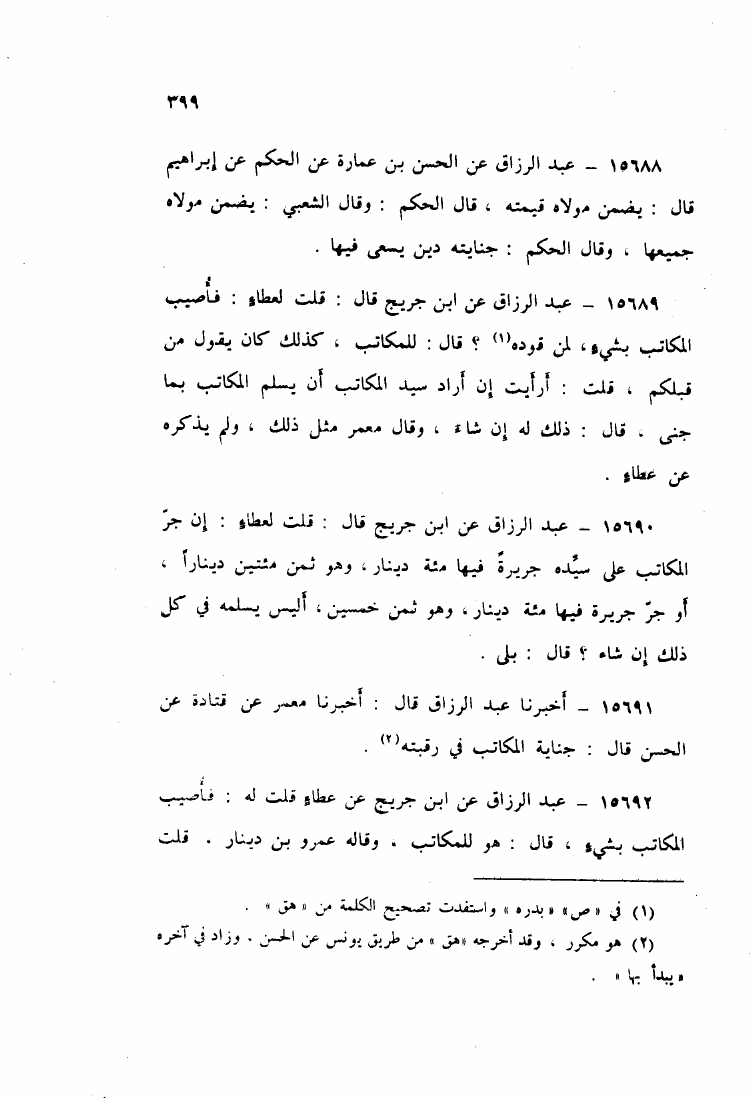 ٣٩٩
١٥٦٨٨ – عبد الرزاق عن الحسن بن عمارة عن الحكم عن إبراهيم
قال : يضمن مولاه قيمته ، قال الحكم : وقال الشعبي : يضمن مولاه
جميعها ، وقال الحكم : جنايته دين يسعى فيها .
١٥٦٨٩ – عبد الرزاق عن ابن جريج قال : قلت لعطاءٍ : فأُصيب
المكاتب بشيءٍ، لمن قوده(١) ؟ قال : للمكاتب ، كذلك كان يقول من
قبلكم ، قلت : أرأيت إن أراد سيد المكاتب أن يسلم المكاتب بما
جنى ، قال : ذلك له إن شاءَ ، وقال معمر مثل ذلك ، ولم يذكره
عن عطاءٍ .
١٥٦٩٠ – عبد الرزاق عن ابن جريج قال : قلت لعطاءٍ : إن جرّ
المكاتب على سيِّده جريرةً فيها مئة دينار ، وهو ثمن مئتين ديناراً ،
أو جرّ جريرة فيها مئة دينار، وهو ثمن خمسين، أليس يسلمه في كل
ذلك إن شاء ؟ قال : بلى .
١٥٦٩١ – أخبرنا عبد الرزاق قال : أخبرنا معمر عن قتادة عن
الحسن قال : جناية المكاتب في رقبته(٢) .
١٥٦٩٢ – عبد الرزاق عن ابن جريج عن عطاءٍ قلت له : فأُصيب
المكاتب بشيءٍ ، قال : هو للمكاتب ، وقاله عمرو بن دينار . قلت
(١) في «ص» «بدره» واستفدت تصحيح الكلمة من «هق» .
(٢) هو مكرر ، وقد أخرجه «هق» من طريق يونس عن الحسن ، وزاد في آخره
«يبدأ بها» .